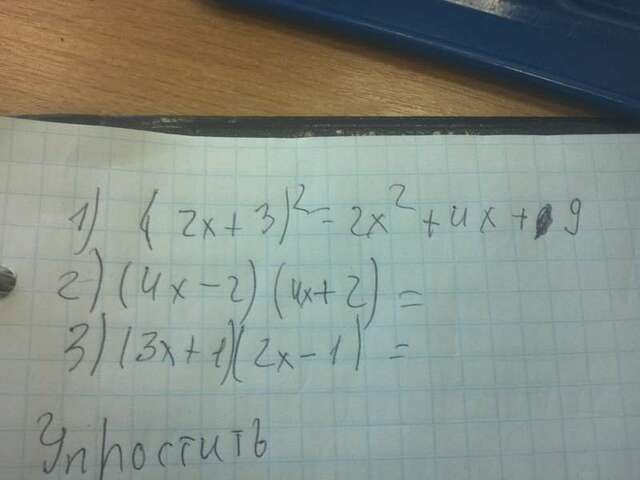 1) (2x+3)²=2x²+4x+9
2) (4x-2)(4x+2)=
3) (3x+1)(2x-1)=
Упростить